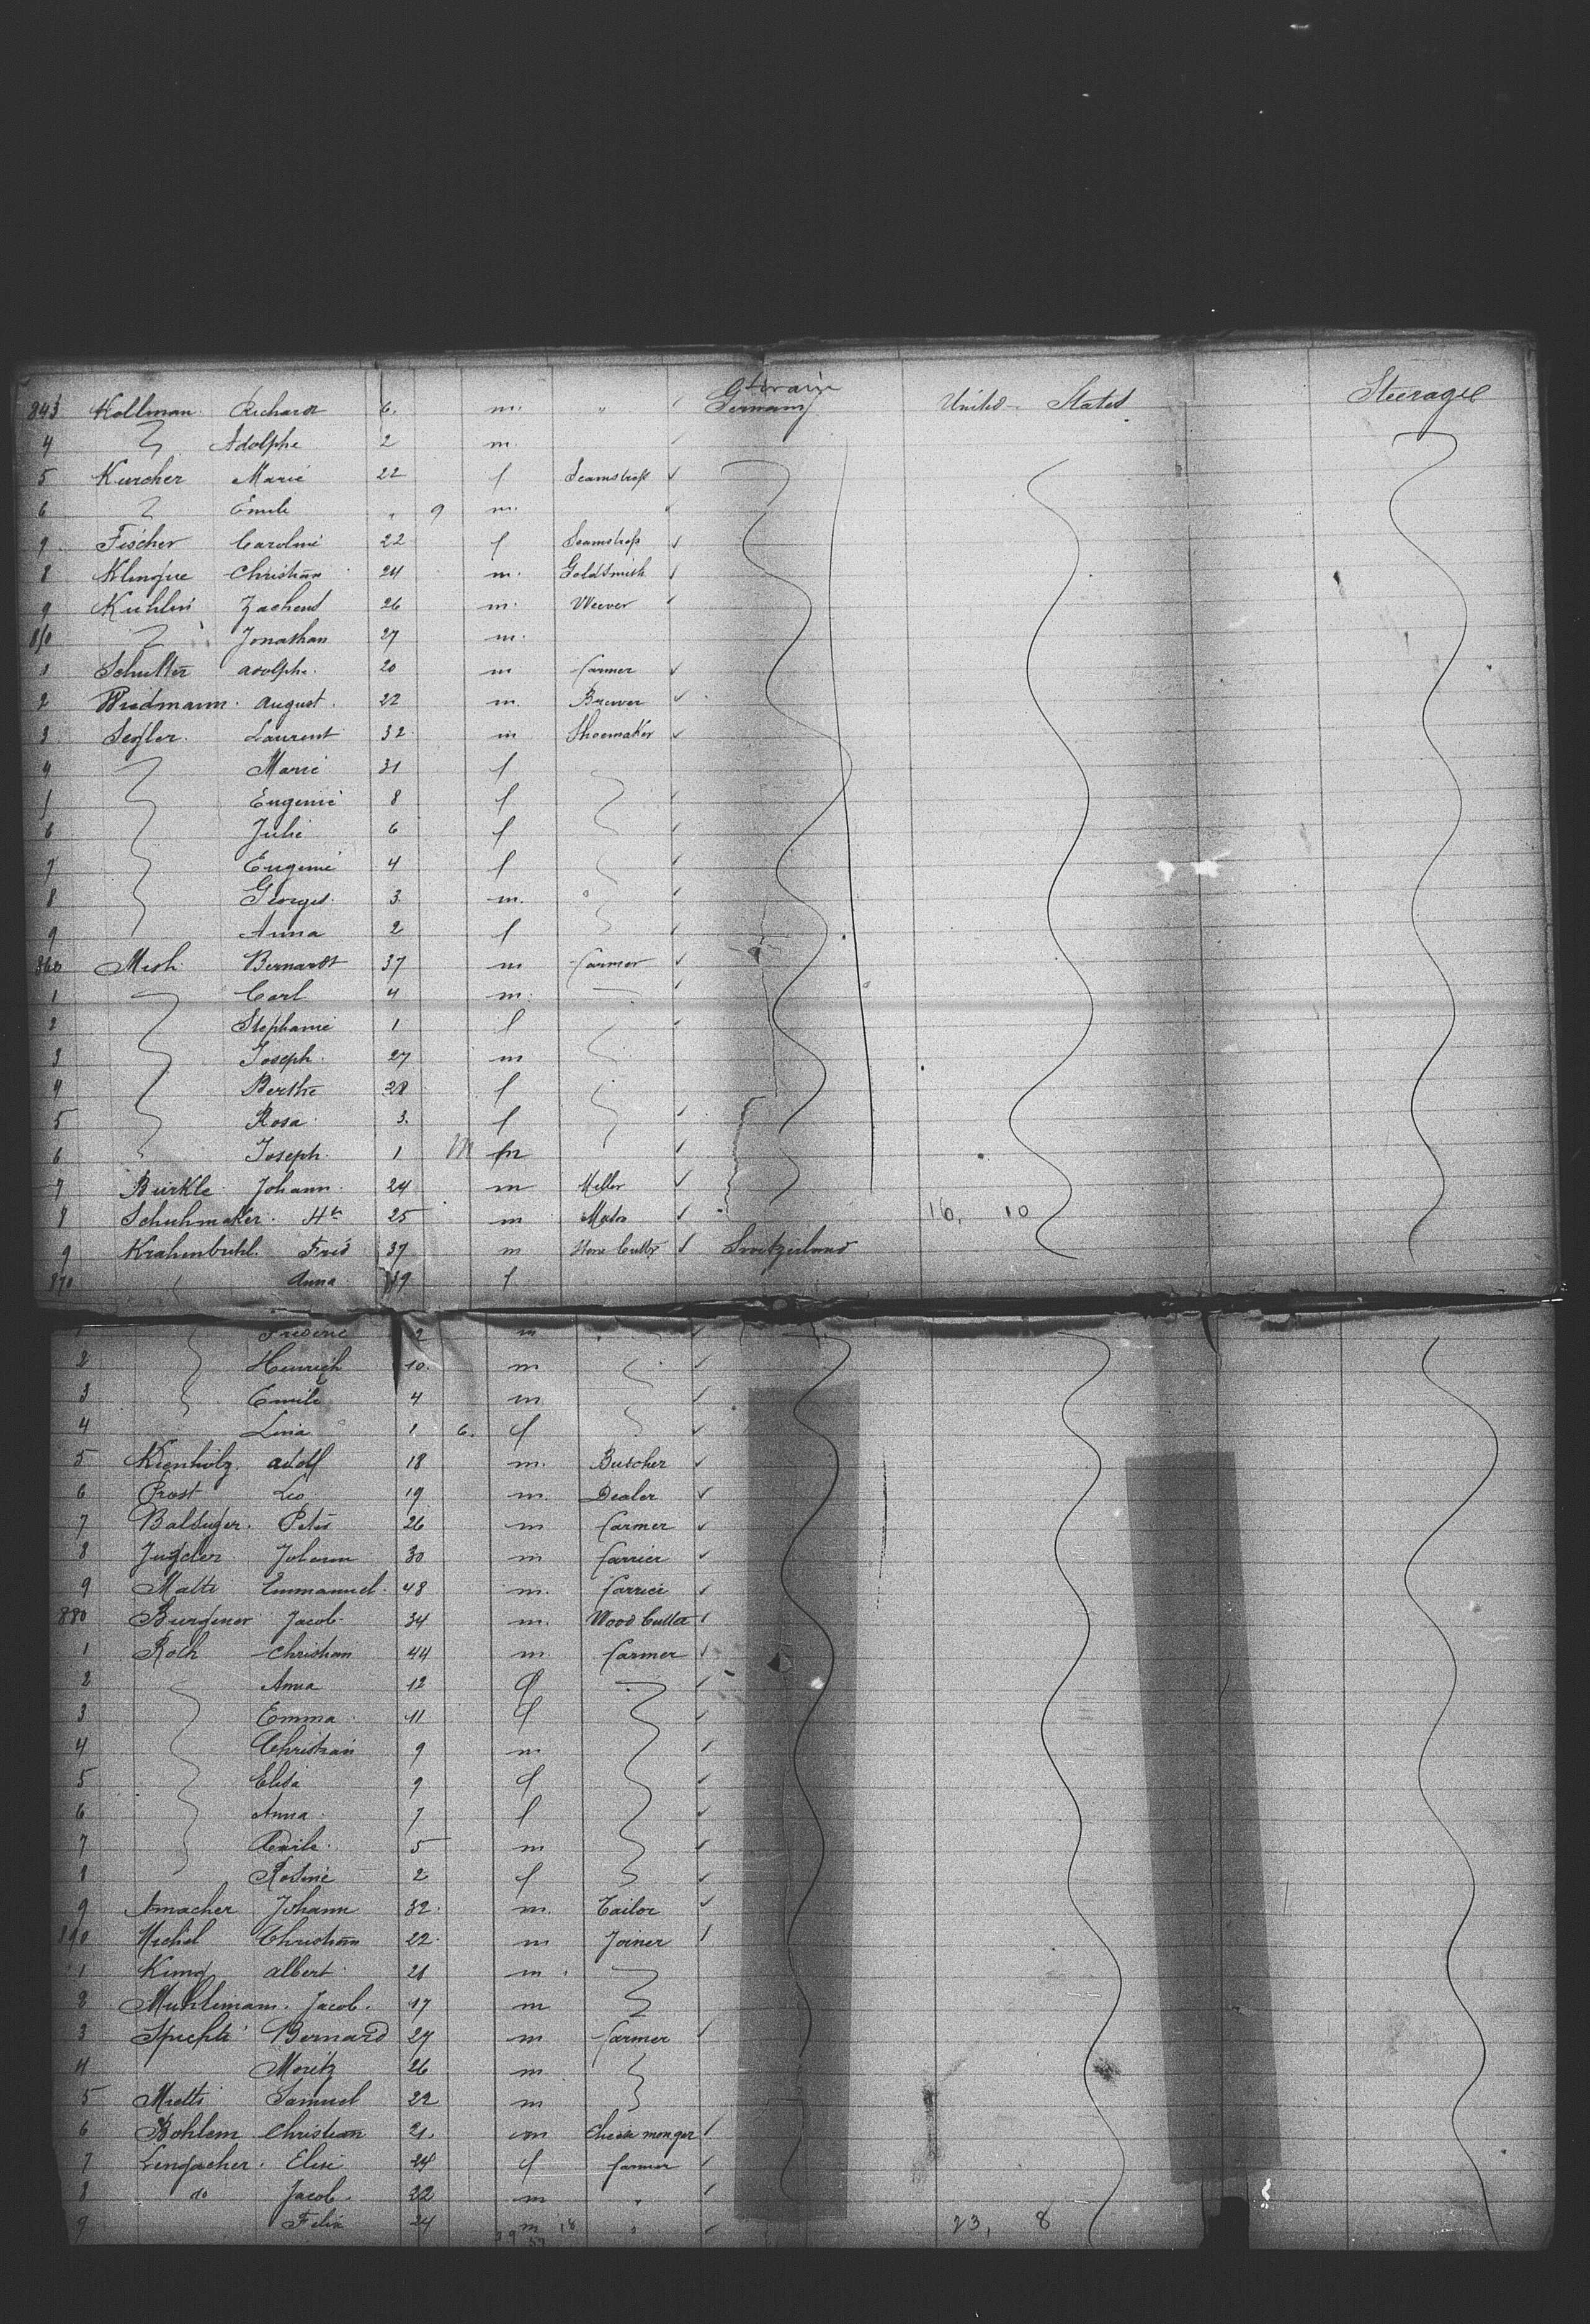 843 Kollman Richard 6. m. " Germany United States Steerage
4 Adolphe 2 m.
5 Kurcher Marie 22 f Seamstress
6 Emile " 9 m.
7 Fischer Caroline 22 f Seamstress
8 Christian 24 m. Goldsmith
9 26 m. Weever
850 Jonathan 27 m.
1 adolphe 20 m farmer
2 Wiedmann August 22 m. Brewer
3 Laurent 32 m Shoemaker
4 Marie 31 f
5 Eugenie 8 f
6 Julie 6 f
7 Eugenie 4 f
8 Georges 3. m.
9 Anna 2 f
860 Bernardt 37 m farmer
1 Carl 4 m.
2 Stephanie 1 f
3 Joseph 27 m
4 Berthe 28 f
5 Rosa 3. f
6 Joseph 1 M m
7 Burkle Johann 24 m Miller
8 Schuhmaker Hh 25 m 16, 10
9 Krahenbuhl Fred 37 m Stone Cutter Switzerland
870 Anna 39 f
1 Frederic 2 m
2 Heinrich 10. m
3 Emile 4 m
4 Lina 1 6. f
5 Kienholz adolf 18 m. Butcher
6 Prost Leo 19 m. Dealer
7 Balsiger Peter 26 m farmer
8 Johann 30 m farrier
9 Matti Emmanuel 48 m. farrier
880 Burgener Jacob 34 m. Wood Cutter
1 Roth Christian 44 m. farmer
2 Anna 12 f
3 Emma 11 f
4 Christian 9 m
5 Elisa 9 f
6 Anna 7 f
7 5 m
8 Rosine 2 f
9 Amacher Johann 32 m. Tailor
890 Michel Christian 22 m Joiner
1 albert 21 m
2 Muhlemann Jacob 17 m
3 Bernard 27 m farmer
4 Moritz 26 m
5 Samuel 22 m
6 Bohlem Christian 21. m Cheese monger
7 Lengacher Elise 24 f farmer
8 do Jacob 22 m "
9 Felix 24 m " 23, 8